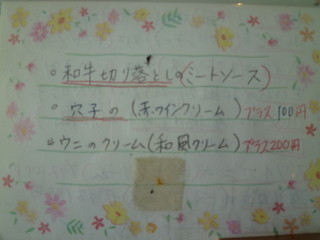 ○ 和牛切り落としの(ミートソース)
○ 穴子の(赤ワインクリーム)プラス100円
○ ウニのクリーム(和風クリーム)プラス200円